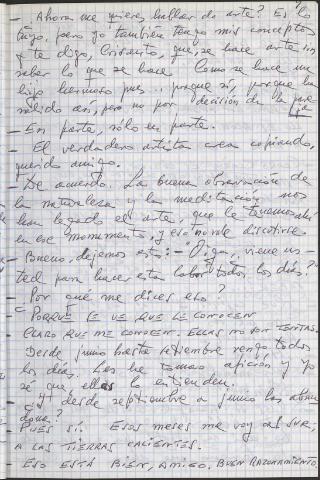 - Ahora me quieres hablar de arte? Es lo
tuyo, pero yo también tengo mis conceptos
y te digo, Crisanto, que se hace arte sin
saber lo que se hace. Como se hace un
hijo hermoso pues... porque sí, porque ha
salido así, pero no por decisión de la pare
ja
- En parte, sólo en parte.
- El verdadero artista crea copiando,
querido amigo.
- De acuerdo. La buena observación de
la naturaleza y la meditación nos
han legado el arte, que le tenemos
en ese monumento, y eso no se discute.
- Bueno, dejemos esto: - "Oiga, viene us-
ted para hacer esta labor todos los días?"
- Por qué me dices eso?
- PORQUE SE VE QUE LE CONOCEN
CLARO QUE ME CONOCEN. ELLAS NO SON TONTAS.
Desde junio hasta septiembre vengo todos
los días. Les he tomao afición y yo
sé que ellas lo entienden.
- Y desde septiembre a junio las aban
dona?
PUES SÍ. ESOS MESES ME VOY AL SUR,
A LAS TIERRAS CALIENTES.
- ESO ESTÁ BIEN, AMIGO. BUEN RAZONAMIENTO.